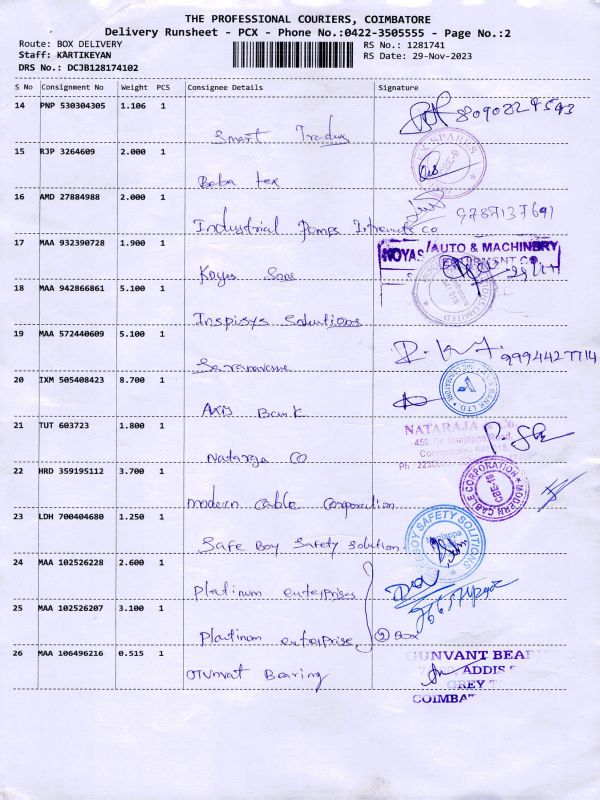 THE PROFESSIONAL COURIERS, COIMBATORE
Delivery Runsheet - PCX - Phone No.:0422-3505555 - Page No.:2
Route: BOX DELIVERY RS No.: 1281741
Staff: KARTIKEYAN RS Date: 29-Nov-2023
DRS No.: DCJB128174102
S No Consignment No Weight PCS Consignee Details Signature
14 PNP 530304305 1.106 1
Smart
15 RJP 3264609 2.000 1
SPARES
Baba tex
16 AMD 27884988 2.000 1
Industrial Pumps co 9787137691
17 MAA 932390728 1.900 1
NOYAS AUTO & MACHINERY
Koyas Sons
18 MAA 942866861 5.100 1
LIMITED
Inspisys Solutions
19 MAA 572440609 5.100 1
9994427714
20 IXM 505408423 8.700 1
BANK LTD
Axis Bank
21 TUT 603723 1.800 1
NATARAJA & Co
450, Dr. Nanjappa Road,
Coimbatore
Ph :
Nataraja Co
22 HRD 359195112 3.700 1
MODERN CABLE CORPORATION
CBE-18
modern Cable Corporation
23 LDH 700404680 1.250 1
BOY SAFETY SOLUTIONS
Safe Boy Safety Solution
24 MAA 102526228 2.600 1
Platinum enterprises
25 MAA 102526207 3.100 1
Platinum enterprise 2 Box
26 MAA 106496216 0.515 1
GUNVANT BEAR
ADDIS S
GREY T
COIMBAT
Bearing